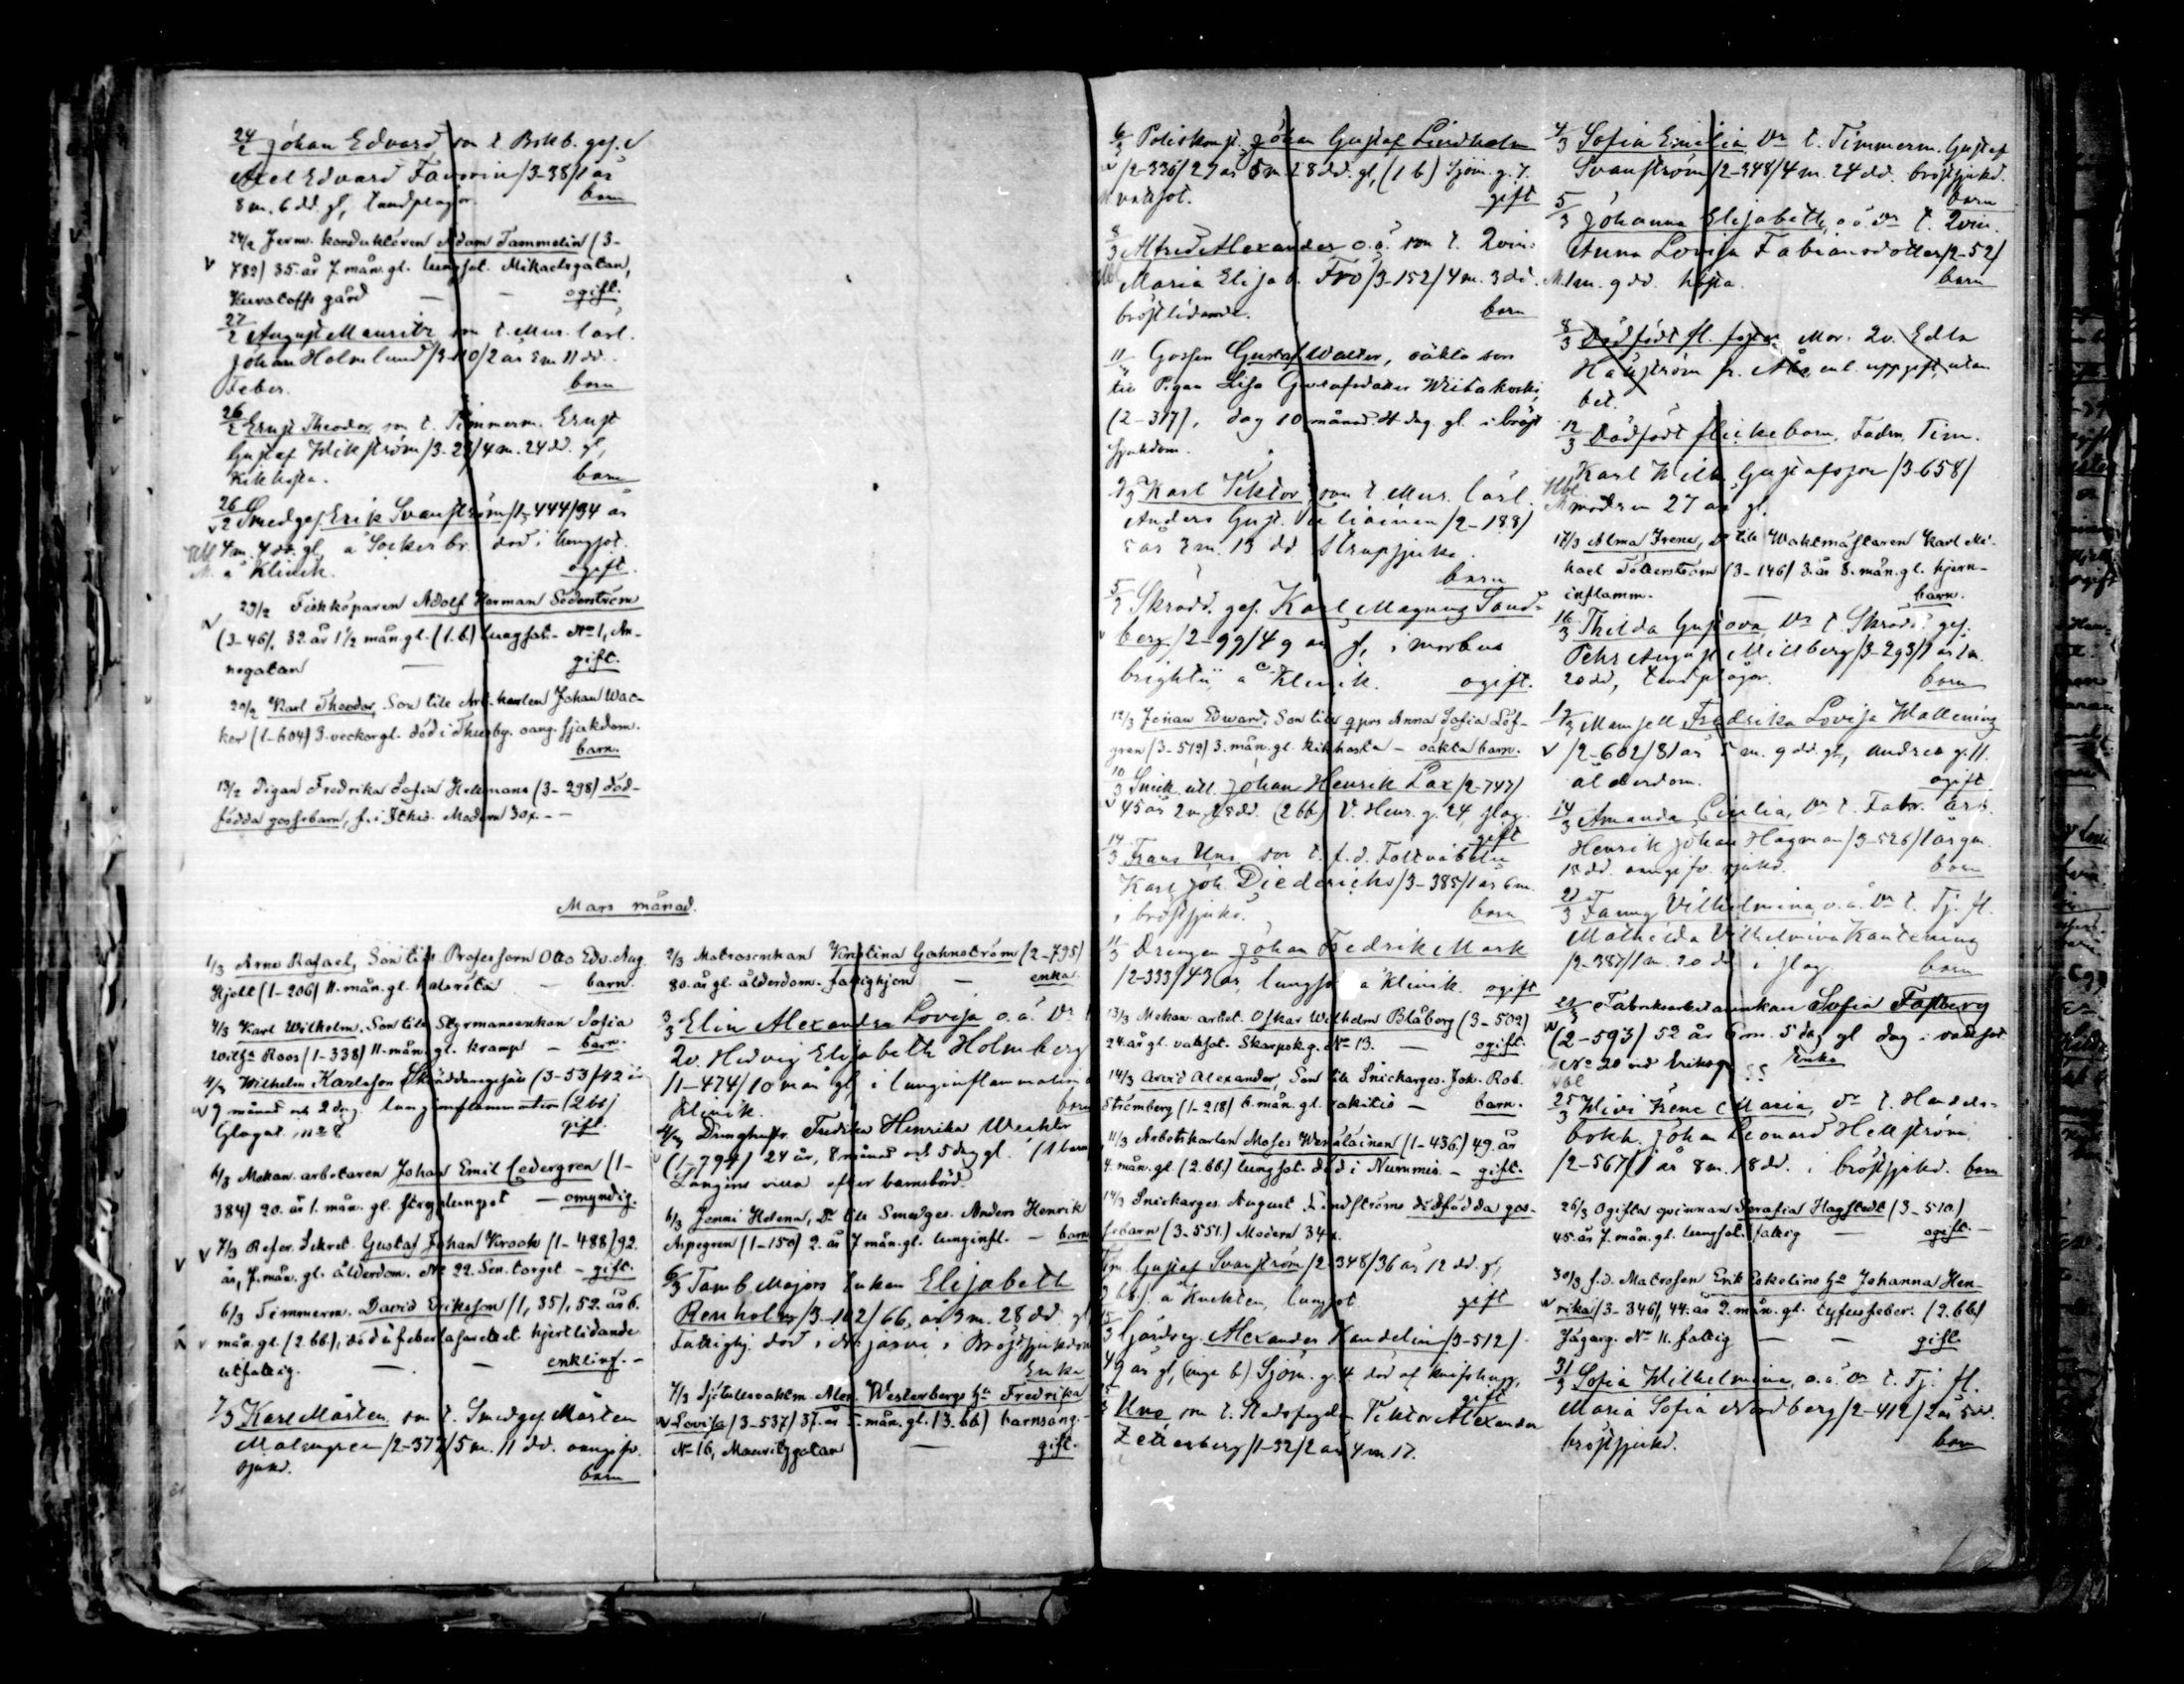 24/2 Johan Edvard son t. Bokb. ges.
Axel Edvard Favorin /3-38/ 1 år
8 m. 6 dd. gl, tandplågor. barn
24/2 Jernv. konduktören Adam Tammelin (3-
789) 35. år 7 mån. gl. lungsot. Mikaelsgatan,
gård — — ogift.
27/2 August Mauritz son t. Mur. lärl.
Johan Holmlund /3-110/ 2 år 3 m 11 dd.
Feber. barn
26/2 Ernst Theodor son t. Timmerm. Ernst
Gustaf Wikström /3-29/ 4 m. 24 dd. gl,
Kikhosta. barn
26/2 Smedges. Erik Svanström /1-444/ 34 år
4 m. 4 dd. gl, a Socker br. död i lungsot.
å Klinik. ogift.
29/2 Fiskköparen Adolf Herman Söderström
(3-46), 32. år 1 1/2 mån. gl. (1. b.) lungsot. No 1, An-
negatan — gift.
20/2 Karl Theodor, Son till Arb. karlen Johan Wac-
ker (1-604) 3. veckor gl. död i Thusby. oang. sjukdom.
barn.
13/2 Pigan Fredrika Sofia Hellmans (3-298) död-
födda gossebarn, f. i Modern 30
Mars månad.
1/3 Arno Rafael, Son till Professorn Otto Edv. Aug.
Hjelt (1-206) 11. mån. gl. halsröta — barn.
4/3 Karl Wilhelm, Son till Styrmansenkan Sofia
Roos (1-338) 11. mån. gl. kramp — barn.
4/3 Wilhelm Karlsson Skräddaregesäll (3-53) 42 år
9 månad och 2 dag. lunginflammation (2 bb)
Glogat. no 8 gift.
6/3 Mekan. arbetaren Johan Emil Cedergren (1-
384) 20. år 1. mån. gl. — omyndig.
7/3 Refer. Sekret. Gustaf Johan Krook (1-488) 92.
år, 7. mån. gl. ålderdom. No 22. Sen. torget — gift.
6/3 Timmerm. David Eriksson (1, 35), 52. år 6.
mån. gl. (2. bb), död å feberlasarettet hjertlidande
utfattig. — — enkling. —
7/3 Karl Mårten son t. Smedges. Mårten
Malmgren /2-377/ 5 m. 11 dd. oangifv.
sjukd. barn
2/3 Matrosenkan Kristina Gahnström (2-795)
80. år gl. ålderdom. fattighjon — enka.
3/3 Elin Alexandra Lovisa o.ä. Dr t.
Qv. Hedvig Elisabeth Holmberg
/1-474/ 10 mån gl, i lunginflammation å
Klinik. barn
4/3 Drenghustr. Fredika Henrika Weckter
(1-794) 24 år, 8 månad och 5 dag gl. (1 barn)
Långins villa efter barnsbörd.
6/3 Jenni Helena, Dr till Smedges. Anders Henrik
Aspegren (1-150) 2. år 7 mån. gl. lunginfl. — barn
6/3 Tamb. Majors Enkan Elisabeth
Renholm /3-102/ 66 år 3 m. 28 dd. gl
Fattighj. död i i Bröstsjukdom
Enka
7/3 Sjötullsvaktm. Alex. Westerbergs hu Fredrika
Lovisa (3-537) 37. år mån. gl. (3. bb) barnsäng. —
No 16, Mauritzgatan — gift.
6/3 Poliskonst. Johan Gustaf Lindholm
/2-336/ 29 år 5 m 28 dd. gl, (1 b.) Sjöm. g. 7.
vatsot. gift
8/3 Alfred Alexander o.ä. son t. Qvin.
Maria Elisab. Frö /3-152/ 4 m. 3 dd.
bröstlidande. barn
11/ Gossen Gustaf Walter, oäkta son
till Pigan Lisa Gustafsdotter Wiitakoski,
(2-317), dog 10 månad. 4 dag. gl. i bröst
sjukdom.
9/3 Karl Viktor son t. Mur. lärl.
Anders Gust. /2-188/
5 år 3 m. 13 dd Strupsjuka.
barn
5/3 Skrädd. ges. Karl Magnus Sand-
berg /2-99/ 49 år gl, i morbus
brightii, å Klinik. ogift.
12/3 Johan Edward, Son till qprs Anna Sofia Löf-
gren (3-519) 3. mån. gl. kikhosta — oäkta barn.
10/3 Snick. Johan Henrik Lax /2-747/
45 år 2 m, 25 dd. (2 bb) V. Henr. g. 24, slag.
gift
14/3 Frans Uno son t. f.d.
Karl Joh. Diederichs /3-385/ 1 år 6 m.
i bröstsjukd. barn
11/3 Drengen Johan Fredrik Mark
/2-333/ 43 år, lungsot å Klinik. ogift
13/3 Mekan. arbet. Oskar Wilhelm Blåberg (3-509)
24. år gl. vatsot. Skarpsk. g. No 13. — ogift.
14/3 Arvid Alexander, Son till Snickarges. Joh. Rob.
Strömberg (1-218) 6. mån. gl. rakitis — barn.
11/3 Arbetskarlen Moses Wenäläinen (1-436.) 49. år
4. mån. gl. (2. bb.) lungsot. död i Nummis. — gift.
14/3 Snickarges. August Lindströms dödfödda gos-
sebarn (3-551.) Modern 34
Tim. Gustaf Svanström /2-348/ 36 år 12 dd. gl,
bb.) å Kuckten, lungsot gift
15/3 Gårdseg. Alexander Kandelin /3-512/
49 år gl, (inga b.) Sjöm. g. 4 död af knifshugg,
gift
Uno son t. Stadsfogden Viktor Alexander
Zetterberg /1-32/ 2 år 4 m. 17.
4/3 Sofia Emilia Dr t. Timmerm. Gustaf
Svanström /2-348/ 4 m. 24 dd. bröstsjukd.
barn
5/3 Johanna Elisabeth, o.ä. Dr t. Qvin.
Anna Lovisa Fabiansdotter /2-52/
1 m. 9 dd. hosta. barn
8/3 Dödfödt fl. foster Mor. Qv. Edla
Hagström fr. Åbo, enl. uppgift, utan
bet.
12/3 Dödfödt flickebarn, Fadrn, Tim.
Karl Wilh. Gustafsson /3-658/
modren 27 år gl.
17/3 Alma Irene, Dr till Waktmästaren Karl Mi-
kael Tötterström (3-146) 3. år 8. mån. gl. hjern-
inflamm. — barn.
16/3 Thilda Gustava, Dr t. Skrädd. ges.
Pehr August Millberg /3-293/ 1 år 1 m.
20 dd, tandplågor. barn
12/3 Mamsell Fredrika Lovisa Wallening
/2-602/ 81 år 5 m. 9 dd. gl, Andreæ g. 11.
ålderdom. ogift
14/3 Amanda Cecilia, Dr t. Fabr. arb.
Henrik Johan Hagman /3-526/ 1 år 9 m.
15 dd. oangifv. sjukd. barn
23/3 Fanny Vilhelmina, o.ä. Dr t. Tj. fl.
Mathilda Vilhelmina Kantening
/2-387/ 1 m. 20 dd i slag. barn
24/3 Fabriksarbetarenkan Sofia Fastberg
(2-593) 52 år 6 m. 5 dag gl dog i vattsot
No 20 vid Eriksg. Enka
25/3 Wivi Irene Maria, Dr t. Handels-
bokh. Johan Leonard Hellström
/2-567/ 1 år 8 m. 18 dd. i bröstsjukd. barn
26/3 Ogifta qvinnan Serafia Hagstedt (3-510.)
45. år 7. mån. gl. lungsot. fattig — ogift. —
30/3 f.d. Matrosen Erik Eskelins hu Johanna Hen-
rika (3-346), 44. år 2. mån. gl. tyfusfeber. (2. bb)
Jägareg. No 11. fattig — — gift.
31/3 Sofia Wilhelmina, o.ä. Dr t. Tj. fl.
Maria Sofia Nordberg /2-412/ 2 år 5 dd.
bröstsjukd. barn